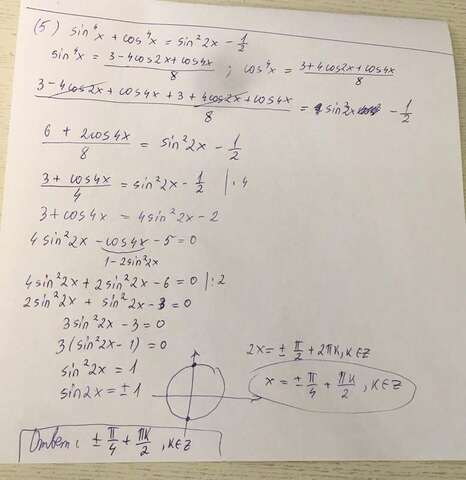 (5) sin⁴x + cos⁴x = sin²2x - 1/2
sin⁴x = (3-4cos2x+cos4x)/8 ; cos⁴x = (3+4cos2x+cos4x)/8
(3-4cos2x+cos4x+3+4cos2x+cos4x)/8 = sin²2x - 1/2
(6 + 2cos4x)/8 = sin²2x - 1/2
(3+cos4x)/4 = sin²2x - 1/2 |·4
3+cos4x = 4sin²2x-2
4sin²2x - cos4x - 5 = 0
1-2sin²2x
4sin²2x + 2sin²2x - 6 = 0 |:2
2sin²2x + sin²2x - 3 = 0
3sin²2x - 3 = 0
3(sin²2x-1) = 0
sin²2x = 1
sin2x = ±1
2x = ± π/2 + 2πk, k∈Z
x = ± π/4 + πk/2, k∈Z
Ответ: ± π/4 + πk/2, k∈Z